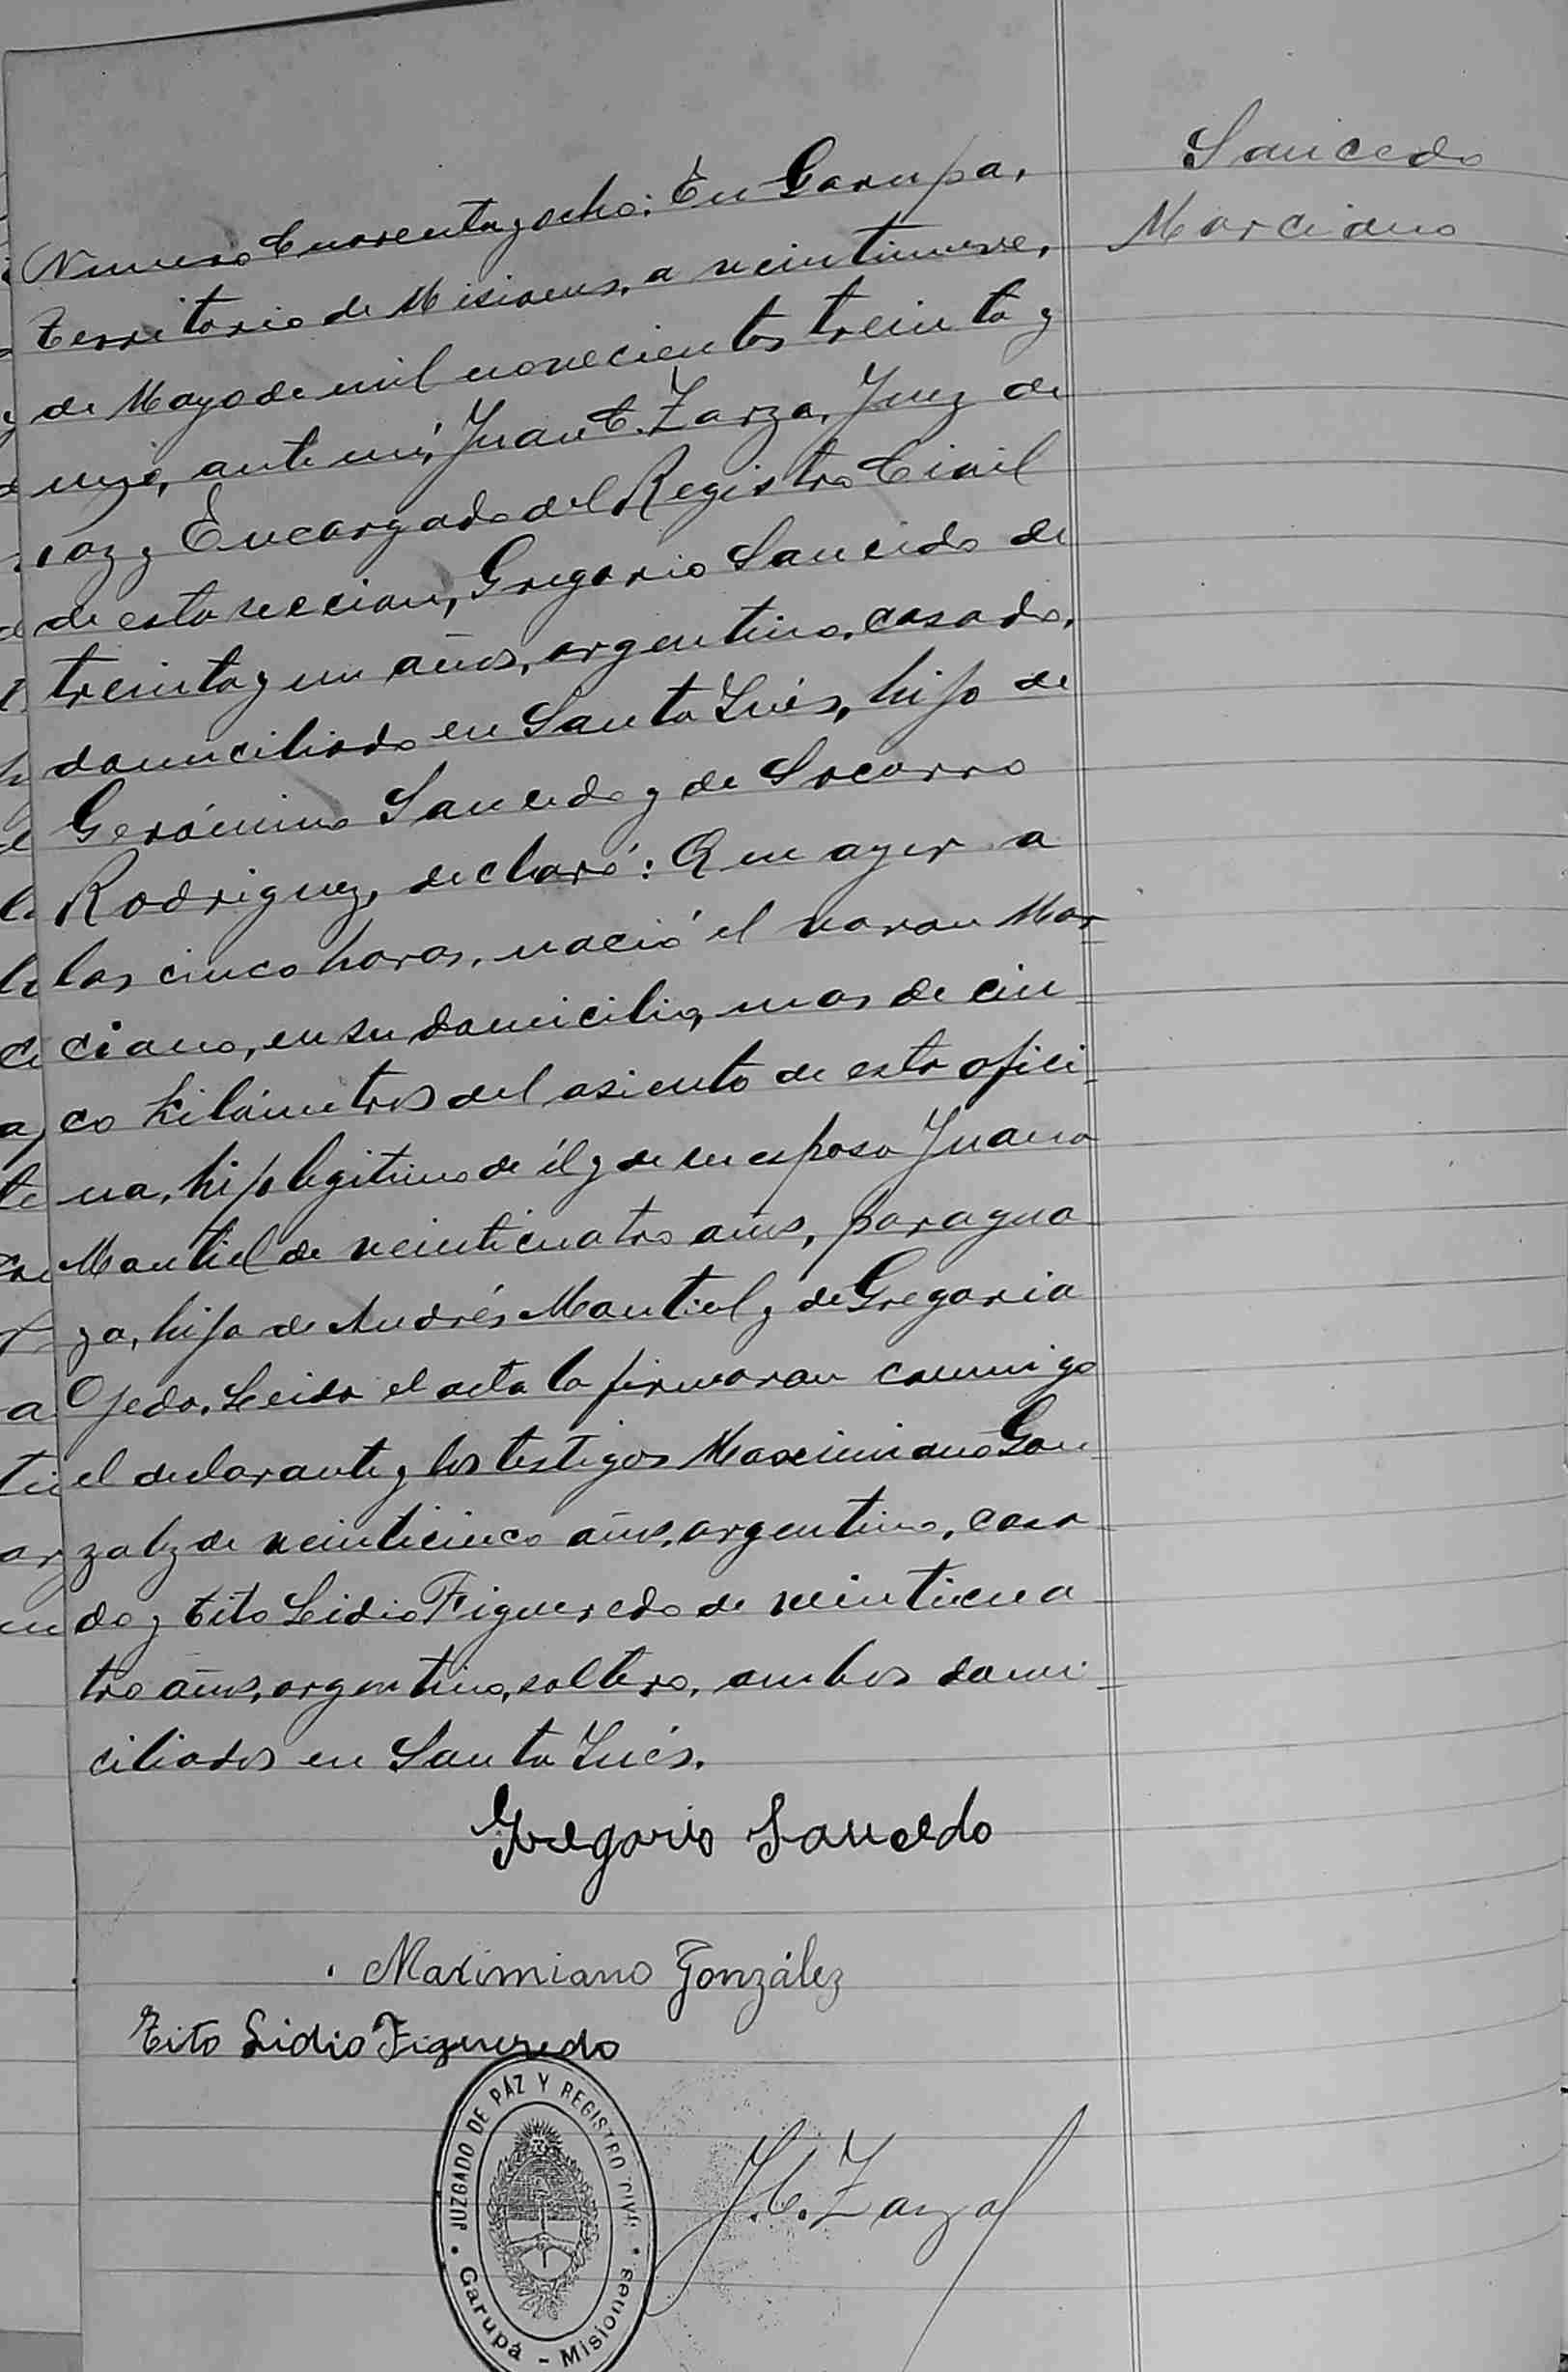 Saucedo
Marciano
Numero Cuarenta y ocho: En Garupa,
territorio de Misiones, a veintinueve,
de Mayo de mil novecientos treinta y
uno, ante mi, Juan C. Zarza, Juez de
Paz y Encargado del Registro Civil
de esta seccion, Gregorio Saucedo de
treinta y un años, argentino, casado,
domiciliado en Santa Inés, hijo de
Gerónimo Saucedo y de Socorro
Rodriguez, declaró: Que ayer a
las cinco horas, nació el varon Mar
ciano, en su domicilio, mas de cin
co kilómetros del asiento de esta ofici
na, hijo legitimo de él y de su esposa Juana
Mantiel de veinticuatro años, paragua
ya, hija de Andrés Mantiel y de Gregoria
Ojeda. Leida el acta la firmaran conmigo
el declarante y los testigos Maximiano Gon
zalez de veinticinco años, argentino, casa
do y Tito Leidio Figueredo de veinticua
tro años, argentino, soltero, ambos domi
ciliados en Santa Inés.
Gregorio Saucedo
Maximiano González
Tito Lidio Figueredo
JUZGADO DE PAZ Y REGISTRO CIVIL
Garupá - Misiones
J. C. Zarza